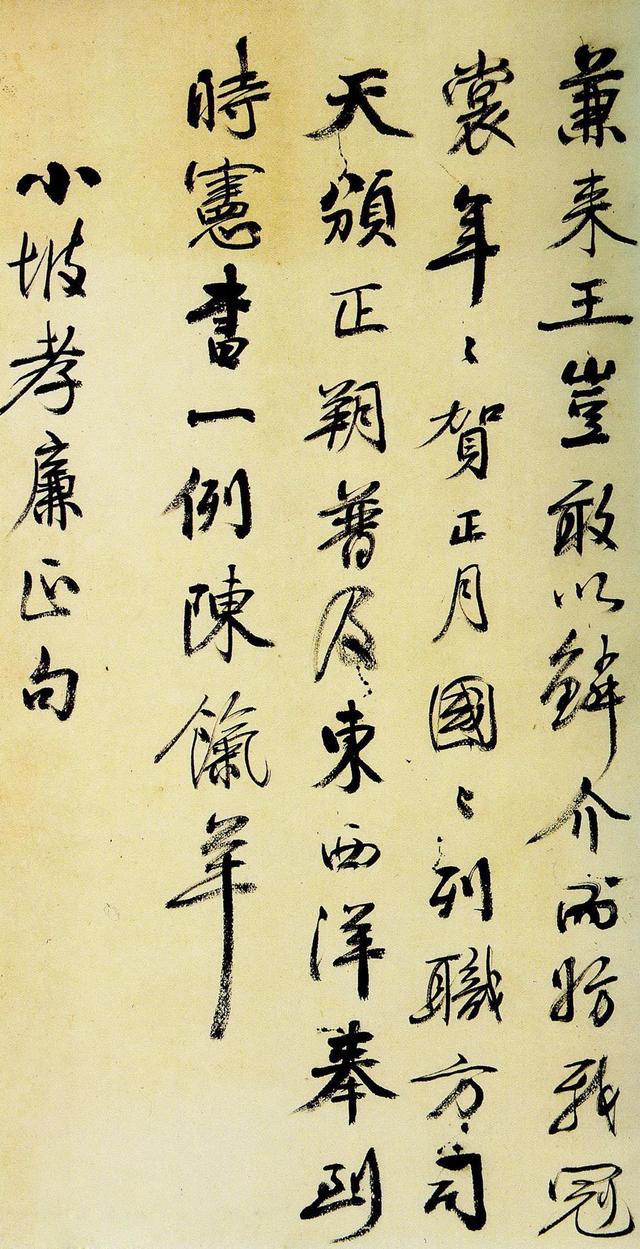 兼来王豈敢以鱗介而妨我冠
裳年〻賀正月國〻列職方司
天頒正朔普及東西洋奉到
時憲書一例陳餼羊
小坡孝廉正句